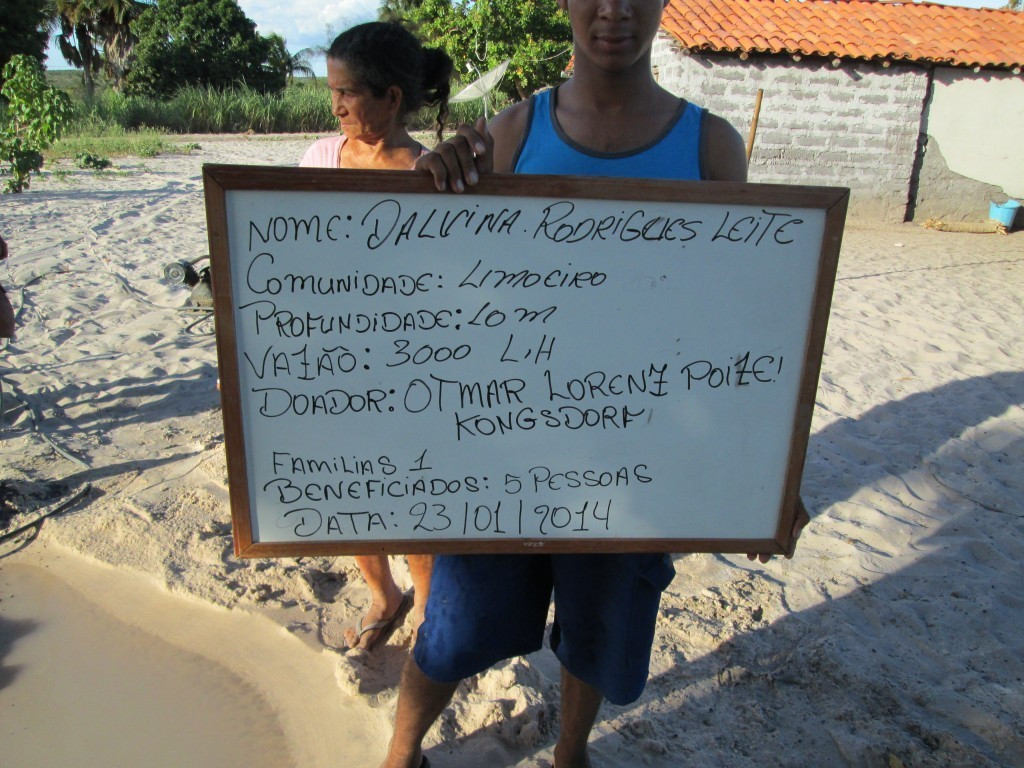 NOME: DALVINA. RODRIGUES LEITE
COMUNIDADE: LIMOEIRO
PROFUNDIDADE: 10 m
VAZÃO: 3000 L.H
DOADOR: OTMAR LORENZ POIZE!
KONGSDORF
FAMILIAS 1
BENEFICIADOS: 5 PESSOAS
DATA: 23/01/2014